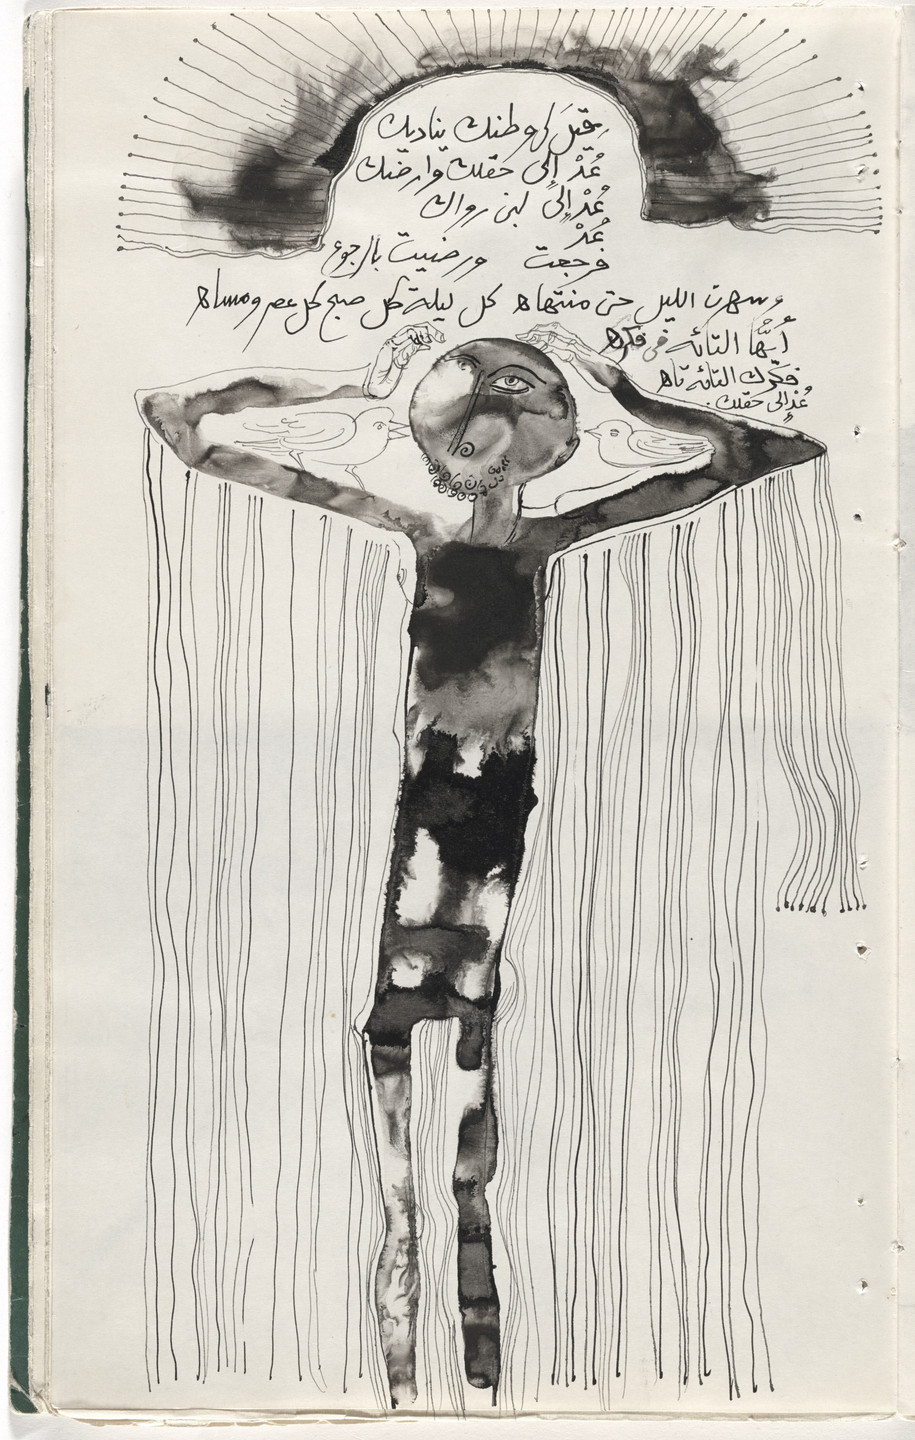 قيلَ لي وطنك يناديك
عُدْ إلى حقلك وارضك
عُدْ إلى لبن رواك
عُدْ
فرجعت ورضيت بالرجوع
وسهرت الليل حتى منتهاه كل ليلة كل صبح كل عصر ومساه
أيُّها التائه في فكره
فكرك التائه تاه
عُد إلى حقلك.